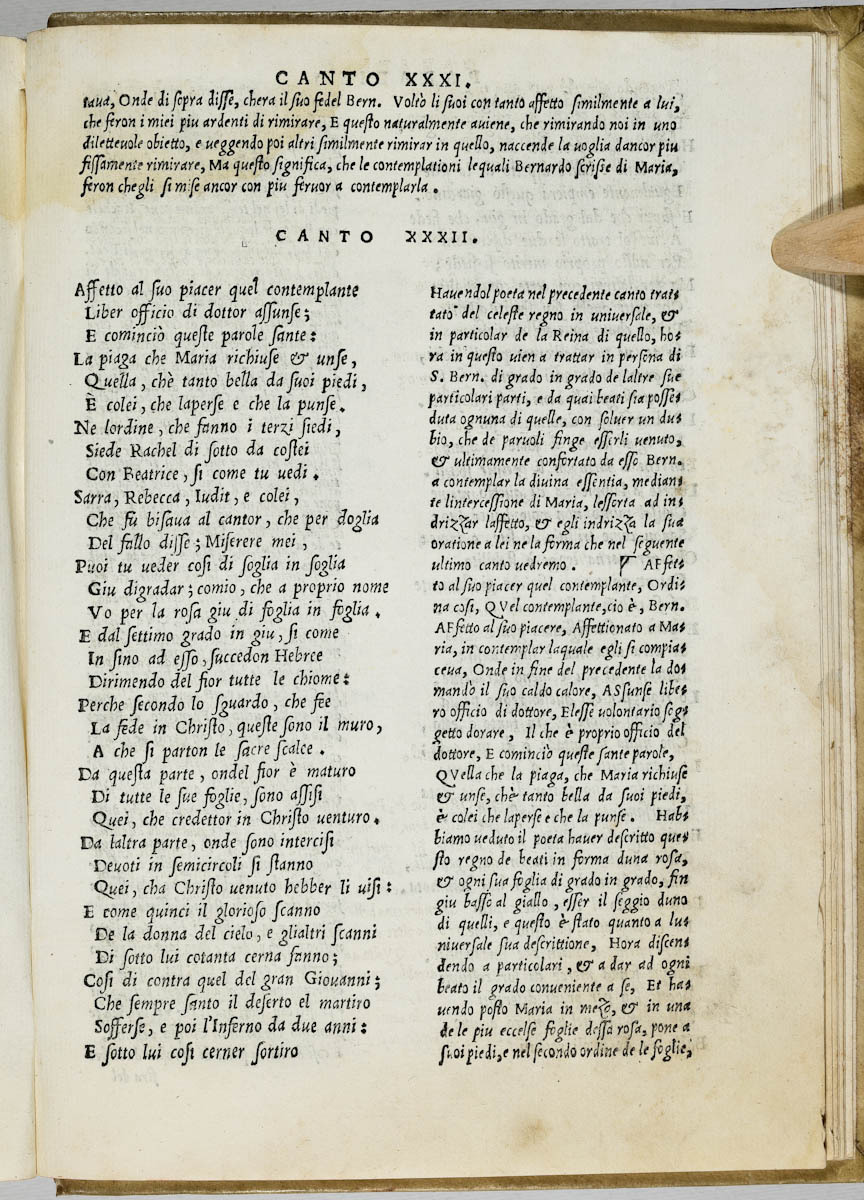 CANTO XXXI.
taua, Onde di sopra disse, chera il suo fedel Bern. Voltò li suoi con tanto affetto similmente a lui,
che feron i miei piu ardenti di rimirare, E questo naturalmente auiene, che rimirando noi in uno
dilettevole obietto, e ueggendo poi altri similmente rimirar in quello, naccende la uoglia dancor piu
fissamente rimirare, Ma questo significa, che le contemplationi lequali Bernardo scrisse di Maria,
feron chegli si mise ancor con piu feruor a contemplarla.
CANTO XXXII.
Affetto al suo piacer quel contemplante
Liber officio di dottor assunse;
E cominciò queste parole sante:
La piaga che Maria richiuse & unse,
Quella, chè tanto bella da suoi piedi,
È colei, che laperse e che la punse.
Ne lordine, che fanno i terzi siedi,
Siede Rachel di sotto da costei
Con Beatrice, si come tu uedi.
Sarra, Rebecca, Iudit, e colei,
Che fù bisaua al cantor, che per doglia
Del fallo disse; Miserere mei,
Puoi tu ueder cosi di soglia in soglia
Giu digradar; comio, che a proprio nome
Vo per la rosa giu di foglia in foglia.
E dal settimo grado in giu, si come
In sino ad esso, succedon Hebree
Dirimendo del fior tutte le chiome:
Perche secondo lo sguardo, che fee
La fede in Christo, queste sono il muro,
A che si parton le sacre scalee.
Da questa parte, ondel fior è maturo
Di tutte le sue foglie, sono assisi
Quei, che credettor in Christo uenturo.
Da laltra parte, onde sono intercisi
Deuoti in semicircoli si stanno
Quei, cha Christo uenuto hebber li uisi:
E come quinci il glorioso scanno
De la donna del cielo, e glialtri scanni
Di sotto lui cotanta cerna fanno;
Cosi di contra quel del gran Giouanni;
Che sempre santo il deserto el martiro
Sofferse, e poi l'Inferno da due anni:
E sotto lui cosi cerner sortiro
Hauendol poeta nel precedente canto trat-
tato del celeste regno in uniuersale, &
in particolar de la Reina di quello, ho-
ra in questo uien a trattar in persona di
S. Bern. di grado in grado de laltre sue
particolari parti, e da quai beati sia posse-
duta ognuna di quelle, con soluer un du-
bio, che de paruoli finge esserli uenuto,
& ultimamente confortato da esso Bern.
a contemplar la diuina essentia, median-
te lintercessione di Maria, lesserta ad in-
drizzar laffetto, & egli indrizza la sua
oratione a lei ne la forma che nel seguente
ultimo canto uedremo. AFfet-
to al suo piacer quel contemplante, Ordi-
na cosi, QVel contemplante, cio è, Bern.
AFfetto al suo piacere, Affettionato a Ma-
ria, in contemplar laquale egli si compia-
ceua, Onde in fine del precedente la do-
mandò il suo caldo calore, ASsunse libe-
ro officio di dottore, Elesse uolontario sog-
getto dorare, Il che è proprio officio del
dottore, E cominciò queste sante parole,
QVella che la piaga, che Maria richiuse
& unse, chè tanto bella da suoi piedi,
è colei che laperse e che la punse. Hab-
biamo ueduto il poeta hauer descritto que-
sto regno de beati in forma duna rosa,
& ogni sua foglia di grado in grado, fin
giu basso al giallo, esser il seggio duno
di quelli, e questo è stato quanto a lu-
niuersale sua descrittione, Hora discen-
dendo a particolari, & a dar ad ogni
beato il grado conueniente a se, Et ha-
uendo posto Maria in mezo, & in una
de le piu eccelse foglie dessa rosa, pone a
suoi piedi, e nel secondo ordine de le foglie,